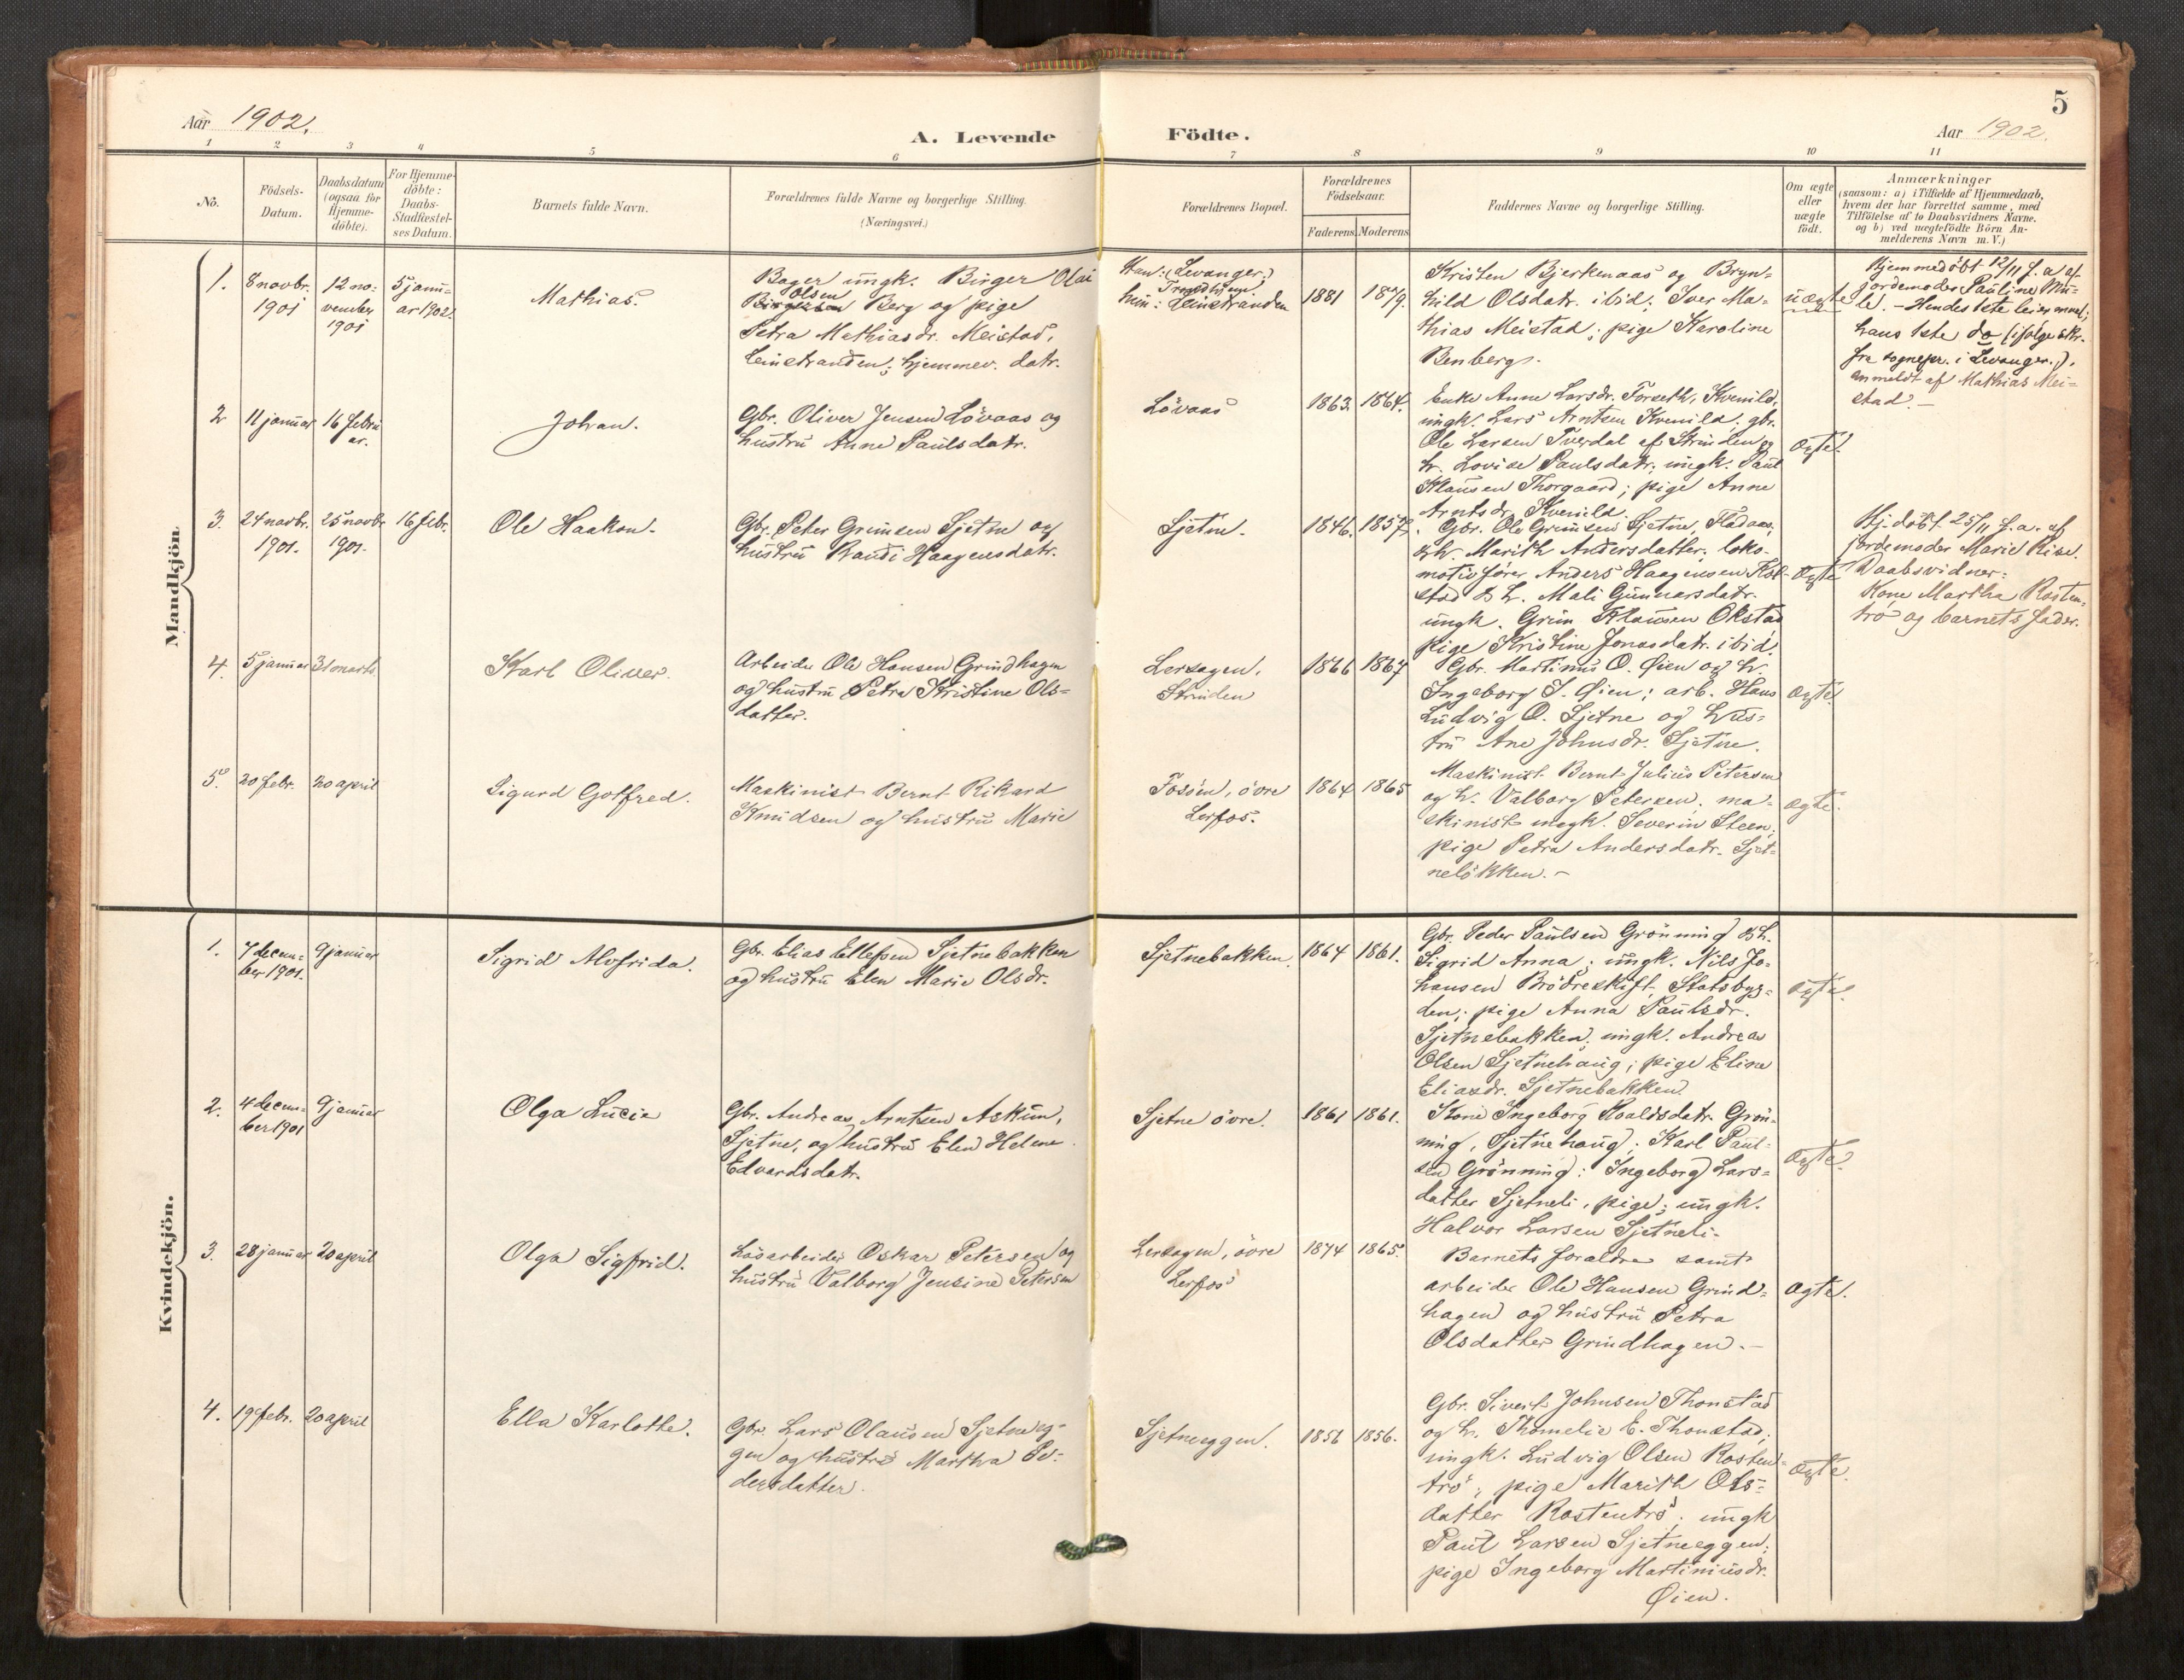 5
Aar 1902.
A. Levende Födte.
Aar 1902.
1 2 3 4 5 6 7 8 9 10 11
No.
Födsels-
Datum.
Daabsdatum
(ogsaa for
Hjemme-
döbte).
For Hjemme-
döbte:
Daabs-
Stadfæstel-
ses Datum.
Barnets fulde Navn.
Forældrenes fulde Navne og borgerlige Stilling.
(Næringsvei.)
Forældrenes Bopæl.
Forældrenes
Födselsaar.
Faderens. Moderens.
Faddernes Navne og borgerlige Stilling.
Om ægte
eller
uægte
födt.
Anmærkninger
(saasom: a) i Tilfælde af Hjemmedaab,
hvem der har forrettet samme, med
Tilföielse af to Daabsvidners Navne.
og b) ved uægtefödte Börn An-
melderens Navn m. V.)
Mandkjön.
1.
8 novbr.
1901
12 no-
vember
1901
5 janu-
ar 1902.
Mathias.
Bager ungk. Birger Olai
Olsen
Berg og pige
Petra Mathiasdr. Meistad,
Leinstranden; hjemmev. datr.
Han: (Levanger;)
Trondhjem
hun: Leinstranden
1881
1879.
Kristen Bjerkenaas og Bryn-
hild Olsdatr. ibid; Iver Ma-
thias Meistad; pige Karoline
Benberg.
uægte
Hjemmedöbt 12/11 f. a. af
jordemoder Pauline Mu-
le. - Hendes 1ste leiermaal;
hans 1ste do (ifölge skr.
fra sognepr. i Levanger.),
anmeldt af Mathias Mei-
stad. -
2
11 januar
16 febru
ar.
Johan.
Gbr. Oliver Jensen Lövaas og
hustru Anne Paulsdatr.
Lövaas
1863.
1864.
Enke Anne Larsdr. Forseth, Kvenild,
ungk. Lars Arntsen Kvenild; gbr.
Ole Larsen Tverdal af Strinden og
h. Lovise Paulsdatr; ungk. Paul
Klausen Thorgaard; pige Anne
Arntsdr. Kvenild.
ægte.
3.
24 novbr.
1901.
25 novbr
1901.
16 febr.
Ole Haakon.
Gbr. Peter Grimsen Sjetne og
hustru Randi Haagensdatr.
Sjetne.
1846.
1857.
Gbr. Ole Grimsen Sjetne, Fladaas,
& h. Marith Andersdatter; loko-
motivförer Anders Haagensen Kol-
stad & h. Mali Gunnarsdatr.
ungk. Grim Klausen Okstad
pige Kristine Jonasdatr. ibid.
ægte
Hj. döbt 25/11 f. a. af
jordemoder Marie Rise.
Daabsvidner:
Kone Martha Rosten-
trö og barnets fader.
4.
5 januar
31 marts.
Karl Oliver.
Arbeider Ole Hansen Grindhagen
og hustru Petra Kristine Ols-
datter.
Lersagen,
Strinden
1866
1867
Gbr. Martinus O. Øien og h.
Ingeborg I. Øien; arb. Hans
Ludvig O. Sjetne og hus-
tru Ane Johnsdr. Sjetne.
ægte.
5.
20 febr.
20 april
Sigurd Gotfred.
Maskinist Bernt Rikard
Knudsen og hustru Marie
Fosöen, övre
Lerfos.
1864
1865
Maskinist Bernt Julius Petersen
og h. Valborg Petersen; ma-
skinist ungk. Severin Steen;
pige Petra Andersdatr. Sjet-
nelökken. -
ægte.
Kvindekjön.
1.
7 decem-
ber 1901.
9 januar
Sigrid Alvfrida.
Gbr. Elias Ellefsen Sjetnebakken
og hustru Elen Marie Olsdr.
Sjetnebakken.
1864
1861.
Gbr. Peder Paulsen Grönning & h.
Sigrid Anna; ungk. Nils Jo-
hansen Brödreskift, Statsbyg-
den; pige Anna Paulsdr.
Sjetnebakken; ungk. Andreas
Olsen Sjetnehaug; pige Eline
Eliasdr. Sjetnebakken
ægte.
2.
4 decem-
ber 1901
9 januar
Olga Lucie
Gbr. Andreas Arntsen Askum,
Sjetne, og hustru Elen Helene
Edvardsdatr.
Sjetne övre.
1861
1861.
Kone Ingeborg Roaldsdatr. Grön-
ning, Sjetnehaug; Karl Paul-
sen Grönning; Ingeborg Lars-
datter Sjetneli, pige; ungk.
Halvor Larsen Sjetneli.
ægte.
3.
28 januar
20 april
Olga Sigfrid.
Lösarbeider Oskar Petersen og
hustru Valborg Jensine Petersen
Lersagen, övre
Lerfos
1874
1865.
Barnets foraldre samt
arbeider Ole Hansen Grind-
hagen og hustru Petra
Olsdatter Grindhagen. -
ægte.
4.
19 febr.
20 april
Ella Karlotte.
Gbr. Lars Olausen Sjetneeg-
gen og hustru Martha Pe-
dersdatter.
Sjetneeggen.
1856
1856.
Gbr. Sivert Johnsen Thonstad
og h. Thomelie E. Thonstad;
ungk. Ludvig Olsen Rosten-
trö; pige Marith Ols-
datter Rostentrö; ungk
Paul Larsen Sjetneeggen;
pige Ingeborg Martiniusdr.
Øien.
ægte.